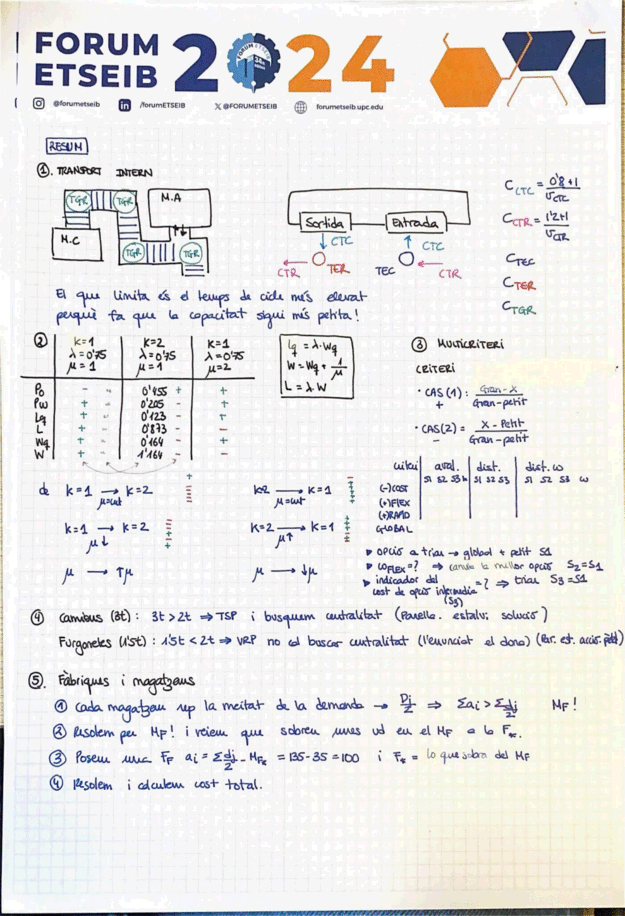 FORUM
ETSEIB
2024
@forumetseib
/forumETSEIB
@FORUMETSEIB
forumetseib.upc.edu
RESUM
①. TRANSPORT INTERN
TGR TGR
M.A
M.C
TGR TGR
Sortida Entrada
CTC CTC
CTR TER TEC CTR
C CTC = 0'8+1 / VCTC
C CTR = 1'2+1 / VCTR
C TEC
C TER
C TGR
El que limita és el temps de cicle més elevat
perquè fa que la capacitat sigui més petita!
②
K=1 K=2 K=1
λ=0'75 λ=0'75 λ=0'75
μ=1 μ=1 μ=2
P0 - - 0'455 + +
Pw + - 0'205 - +
Lq + - 0'123 -
L + - 0'873 - -
Wq + - 0'164 - +
W + - 1'164 - -
Lq = λ·Wq
W = Wq + 1/μ
L = λ·W
de K=1 → K=2
μ=cut
K=1 → K=2
μ↓
μ → ↑μ
K=2 → K=1
μ=cut
K=2 → K=1
μ↑
μ → ↓μ
③ MULTICRITERI
CRITERI
· CAS (1) : Gran-X / Gran-petit
+
· CAS(2) = X-Petit / Gran-petit
-
aval. dist. dist. w
S1 S2 S3 S1 S2 S3 S1 S2 S3 w
(-)COST
(+)FLEX
GLOBAL
▶ opció a triar → global + petit S1
▶ WFLEX=? ⇒ canvia la millor opció S2=S1
▶ indicador del
cost de opció intermèdia =? ⇒ triar S3=S1
(S3)
④ Camions (3t) : 3t>2t ⇒ TSP i busquem centralitat (Parella. estalvi solució)
Furgonetes (1'5t) : 1'5t<2t ⇒ VRP no cal buscar centralitat (l'enunciat el dona) (Par. est. acció. petit)
⑤. Fàbriques i magatzems
① Cada magatzem rep la meitat de la demanda → Dj/2 ⇒ Σai > Σdj/2 MF!
② Resolem per MF! i veiem que sobren unes ud en el MF a la F*.
③ Posem una FF ai = Σdj/2 - MF* = 135-35=100 i F* = lo que sobra del MF
④ Resolem i calculem cost total.